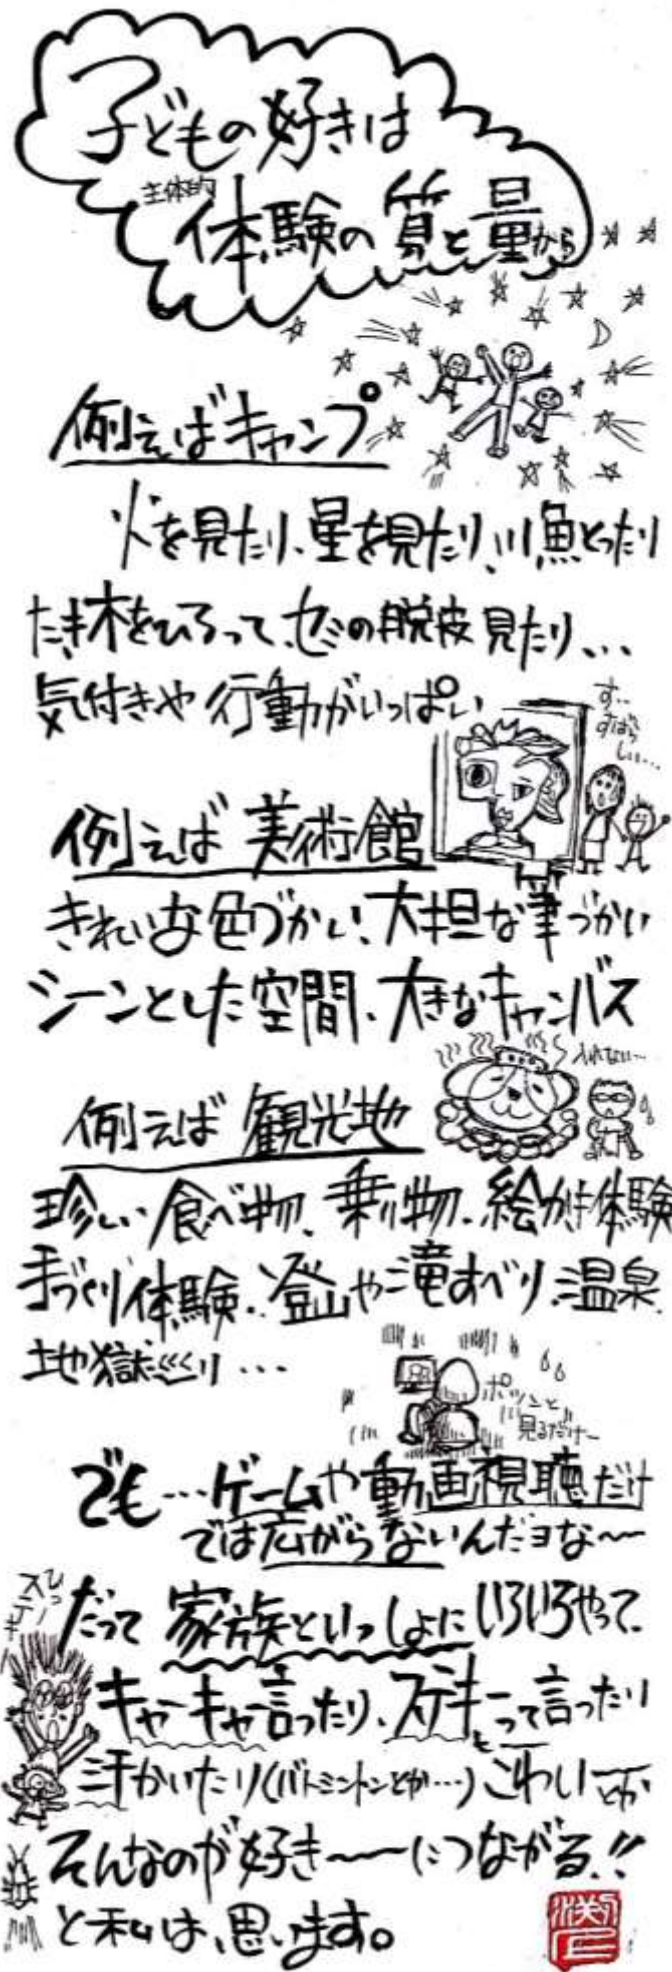 子どもの好きは
主体的
体験の質と量から
例えばキャンプ
火を見たり、星を見たり、川魚とったり
たき木をひろって、セミの脱皮見たり、、、
気付きや行動がいっぱい
す…
すばら
しい…
例えば 美術館
きれいな色づかい、大胆な筆づかい
シーンとした空間、大きなキャンバス
入れない…
例えば 観光地
珍しい食べ物、乗り物、絵かき体験
手づくり体験、登山や滝すべり、温泉
地獄巡り…
ポツンと
見るだけ〜
でも…ゲームや動画視聴だけ
では広がらないんだヨな〜〜
だって 家族といっしょに いろいろやって、
ステキ
キャーキャー言ったり、ステキーって言ったり
汗かいたり(バトミントンとか…)こわいーとか
そんなのが好き〜〜につながる!!
と私は、思います。